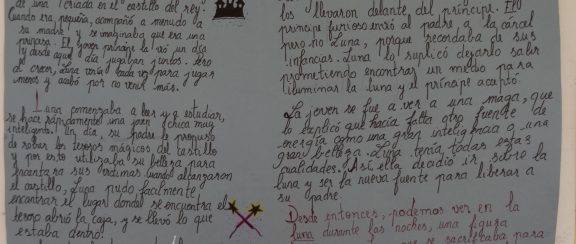 de una criada en el castillo del rey.
Cuando era pequeña, acompañó a menudo a
su madre, y se imaginaba que era una
princesa. El joven príncipe la vió un día
y desde aquel día jugaban juntos. Pero
al crecer, Luna venía cada vez para jugar
menos y acabó por no venir más.
Luna comenzaba a leer y a estudiar,
se hace rápidamente una joven chica muy
inteligente. Un día, su padre le propuso
de robar los tesoros mágicos del castillo
y por esto utilizaba su belleza para
encantara sus víctimas. Cuando alcanzaron
el castillo, Luna pudo facilmente
encontrar el lugar donde se encuentra el
tesoro abrió la caja, y se llevó lo que
estaba dentro.
los llevaron delante del príncipe. El
príncipe furioso envió al padre, a la cárcel
pero no Luna, porque recordaba de sus
infancias. Luna lo suplicó dejarlo salir
prometiendo encontrar un medio para
iluminar la luna y el príncipe aceptó.
La joven se fue a ver a una maga, que
lo explicó que hacía falta otro fuente de
energía como una gran inteligencia o una
gran belleza. Luna tenía todas estas
cualidades. Así, ella decidió ir sobre la
luna y ser la nueva fuente para liberar a
su padre.
Desde entonces, podemos ver en la
luna durante las noches, una figura
que se sacrificaba para